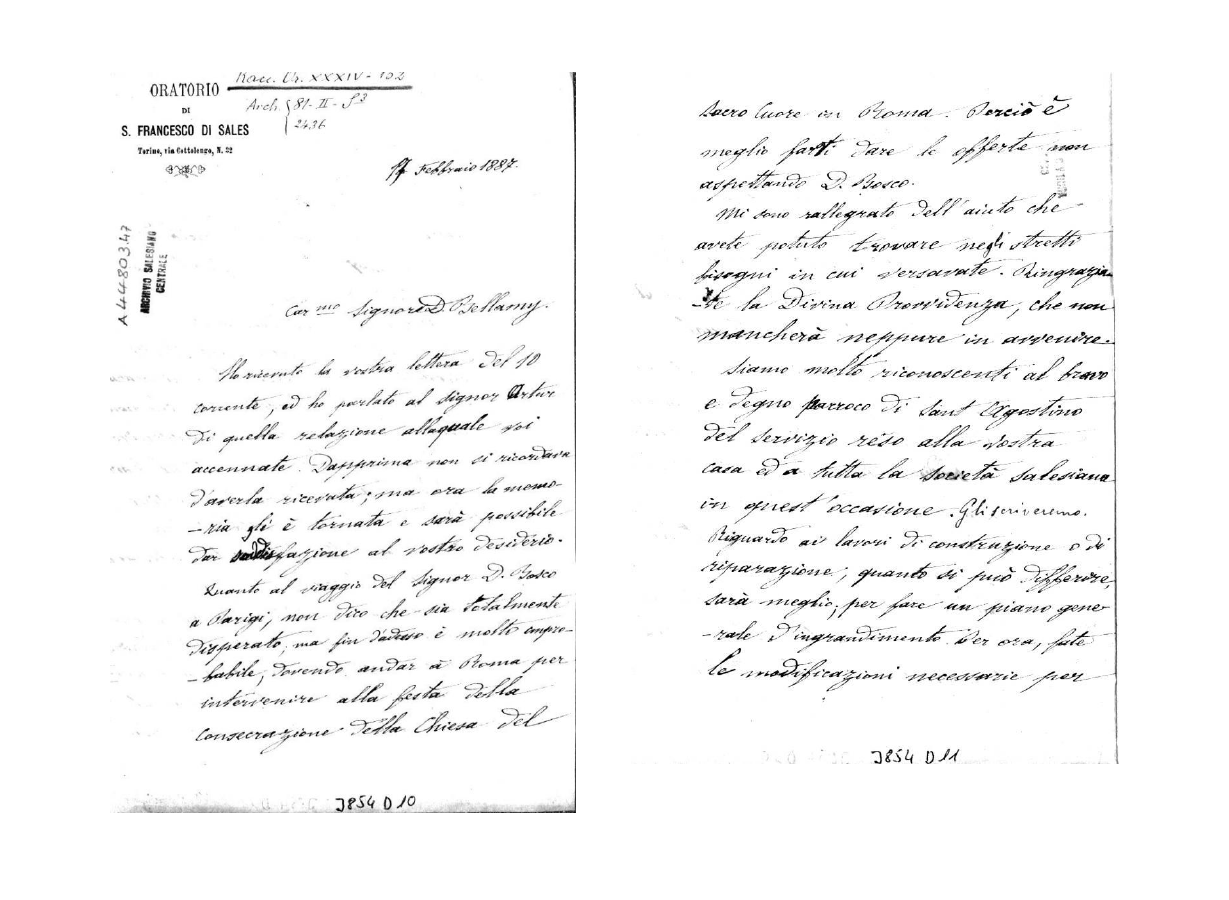 ORATORIO
DI
S. FRANCESCO DI SALES
Torino, via Cottolengo, N. 32
Racc. Or. XXXIV - 152
Arch. 81-II-S3
2436
A4480347
ARCHIVIO SALESIANO
CENTRALE
17 Febbraio 1887.
Car.mo Signore D. Bellamy.
Ho ricevuto la vostra lettera del 10
corrente, ed ho parlato al Signor Artur
di quella relazione alla quale voi
accennate. Dapprima non si ricordava
d'averla ricevuta; ma ora la memo-
-ria gli è tornata e sarà possibile
dar soddisfazione al vostro desiderio.
Quanto al viaggio del Signor D. Bosco
a Parigi, non dirò che sia totalmente
disperato, ma fin d'adesso è molto impro-
-babile, dovendo andar a Roma per
intervenire alla festa della
Consecrazione della Chiesa del
J854 D 10
Sacro Cuore in Roma. Perciò è
meglio farti dare le offerte non
aspettando D. Bosco.
Mi sono rallegrato dell'aiuto che
avete potuto trovare negli stretti
bisogni in cui versavate. Ringrazia-
-te la Divina Provvidenza, che non
mancherà neppure in avvenire.
Siamo molto riconoscenti al bravo
e degno parroco di Sant'Agostino
del servizio reso alla vostra
casa ed a tutta la Società Salesiana
in quest'occasione. Gli scriveremo.
Riguardo ai lavori di construzione o di
riparazione, quanto si può differire,
sarà meglio, per fare un piano gene-
-rale d'ingrandimento. Per ora, fate
le modificazioni necessarie per
J854 D 11